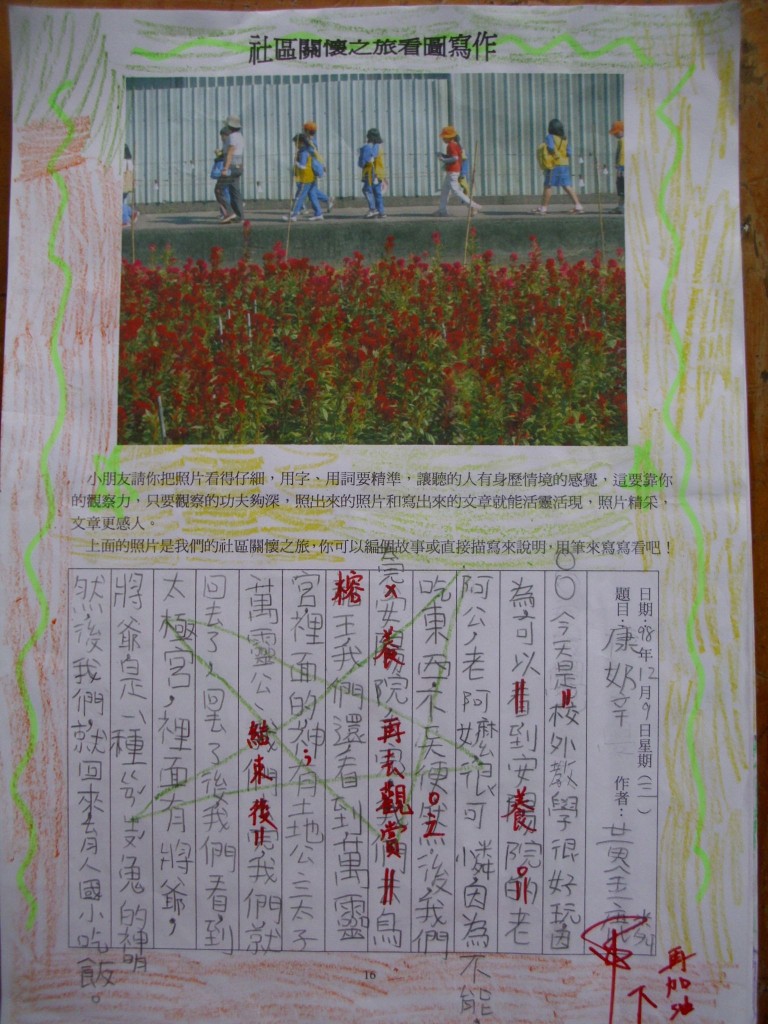 社區關懷之旅看圖寫作
小朋友請你把照片看得仔細，用字、用詞要精準，讓聽的人有身歷情境的感覺，這要靠你
的觀察力，只要觀察的功夫夠深，照出來的照片和寫出來的文章就能活靈活現，照片精采，
文章更感人。
上面的照片是我們的社區關懷之旅，你可以編個故事或直接描寫來說明，用筆來寫寫看吧！
日期：98年12月9日星期(三)
題目：康奶辛 作者：黃
今天是校外教學很好玩因
為可以看到安養院的老
阿公，老阿嬤很可憐，因為不能
吃東西，不方便。然後，我們
完安養院，再去觀賞鳥
榕王我們還看到萬靈
宮裡面的神，有土地公三太子
萬靈公，我們結束後我們就
回去了，回去了後，我們看到
太極宮，裡面有將爺，
將爺是一種ㄍㄢˇ鬼的神明
然後我們就回來育人國小吃飯。
再加油
下
16